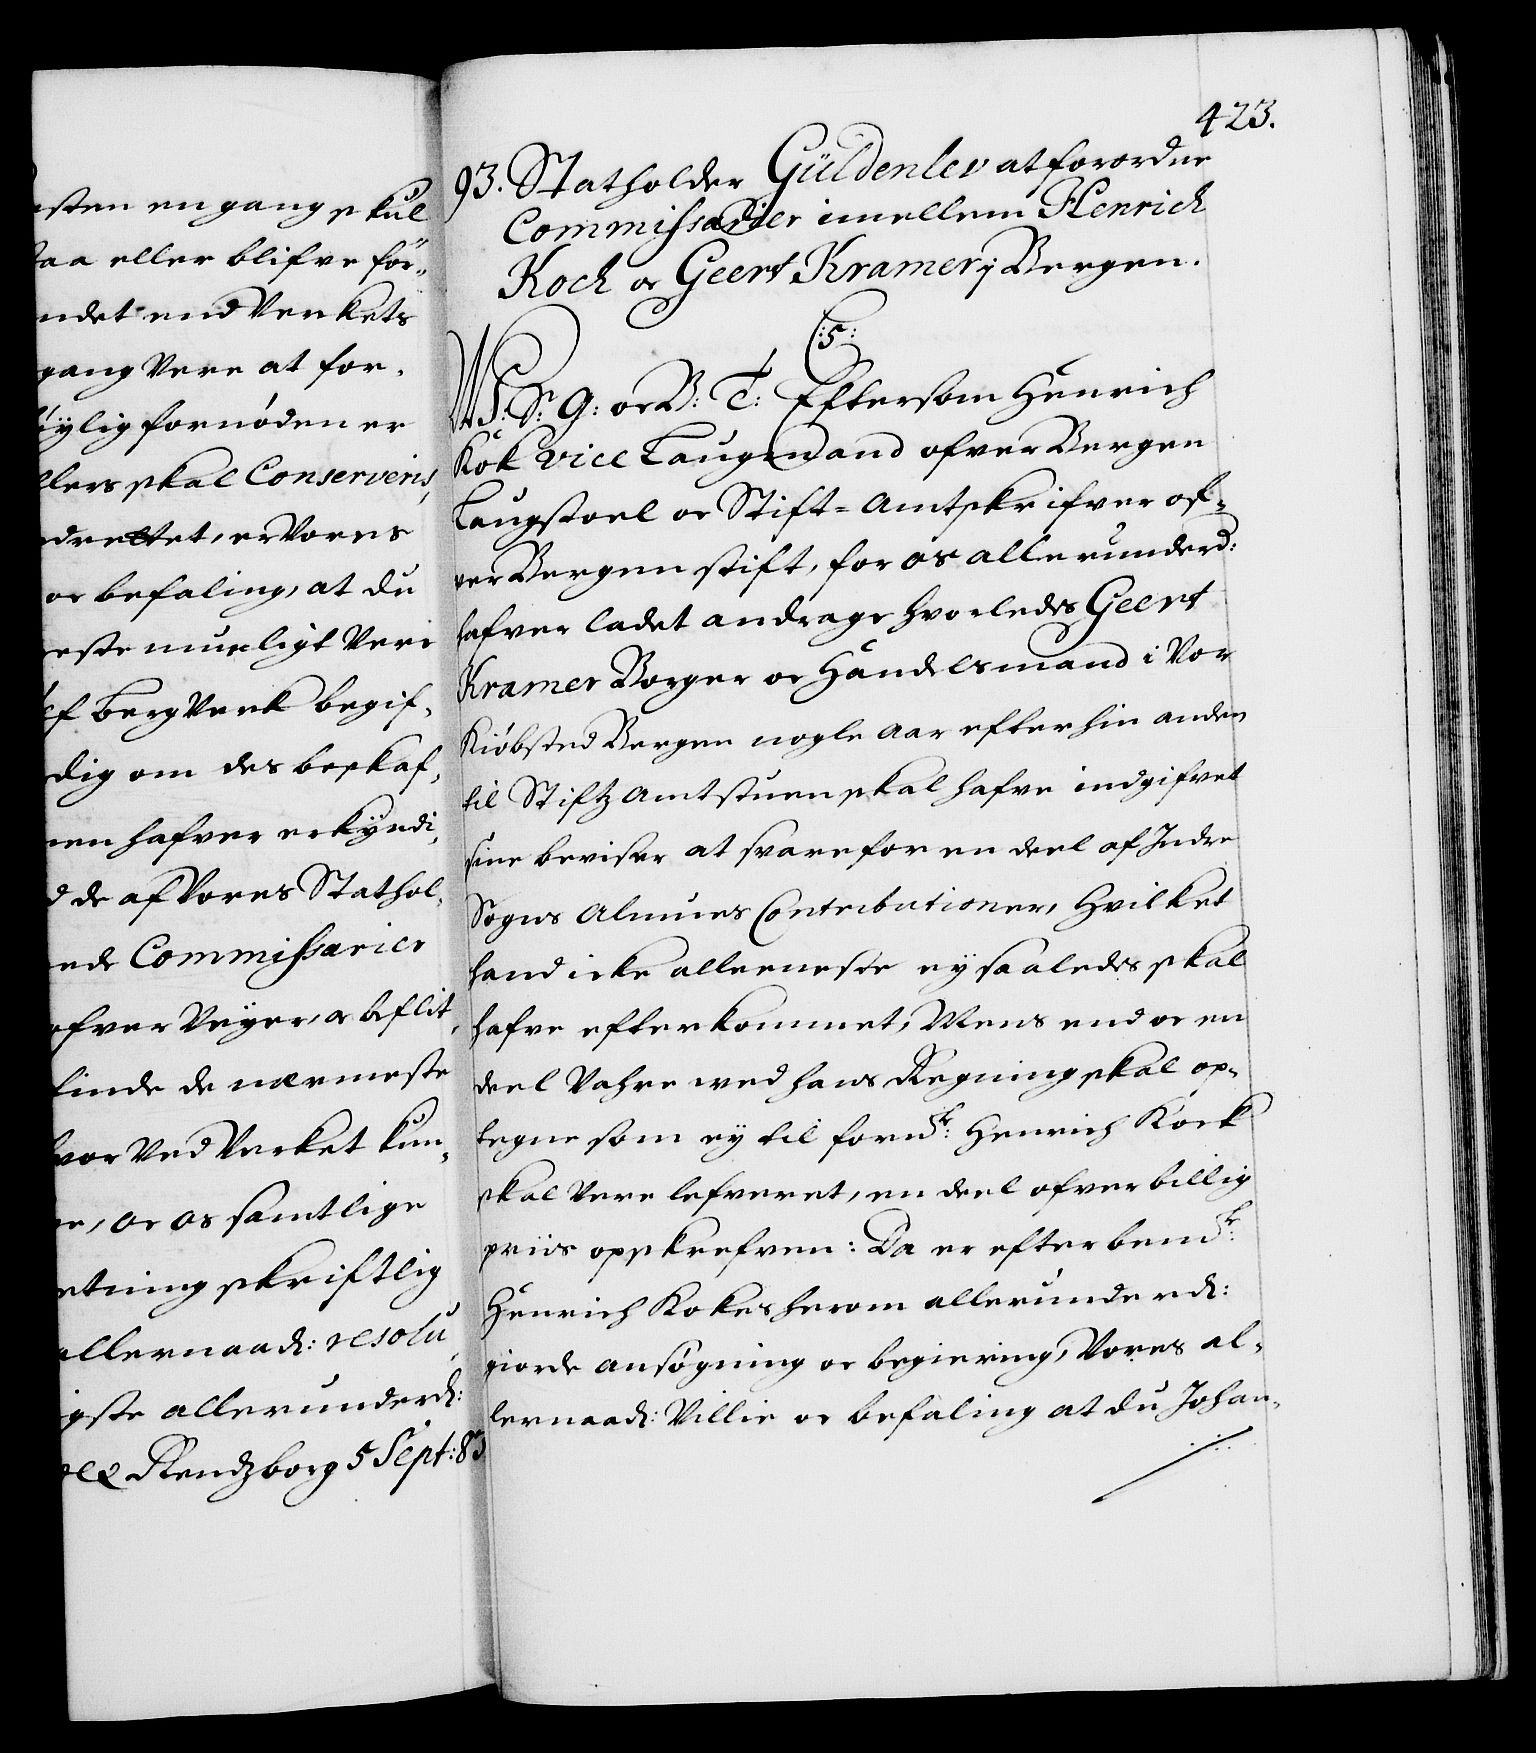 sten en gang skul
staa eller blifve för-
ndet end Verkets
gang Vere at for-
øÿlig fornøden er
llers skal Conserveris,
drettet, er Vores
oc befaling, at du
meste mueligt Veri
ef Berg Verk begif-
dig om des beskaf-
nen hafver erkÿndi-
d de af Vores Stathol-
nde Commissarier
ofver Veÿer, oc beflit-
finde de nærmeste
hvor Ved Verket kun-
re, oc os samtlige
etning skriftlig
allernaad: resolu-
igste allerunderd:
Rendzborg 5 Sept: 83
423.
93. Statholder Güldenlev at forordne
Commissarier imellem Henrich
Koch oc Geert Kramer j Bergen.
C:5:
W S: G: oc V: T: Eftersom Henrich
Kok Vice Laugmand ofver Bergen
Laugstoel oc Stift-Amtskrifver of-
ver Bergen stift, for os allerunderd:
hafver ladet andrage hvorledis Geert
Kramer Borger oc Handelsmand i Vor
Kiøbsted Bergen nogle Aar efter hin anden
til Stiftz Amtstuen skal hafve indgifvet
sine beviser at svare for en deel af Indre
Sogns Almues Contributioner, Hvilket
hand icke alleeneste eÿ saaledis skal
hafve efterkommet, Mens end oc en
deel Vahre med hans Regning skal op-
tegne som eÿ til fornde: Henrich Kock
skal Vere lefveret, en deel ofver billig
priis opskrefven: Da er efter bemde:
Henrich Kokes herom allerunderd:
giorde ansøgning oc begiering, Vores al-
lernaad: Villie oc befaling at du Johan-